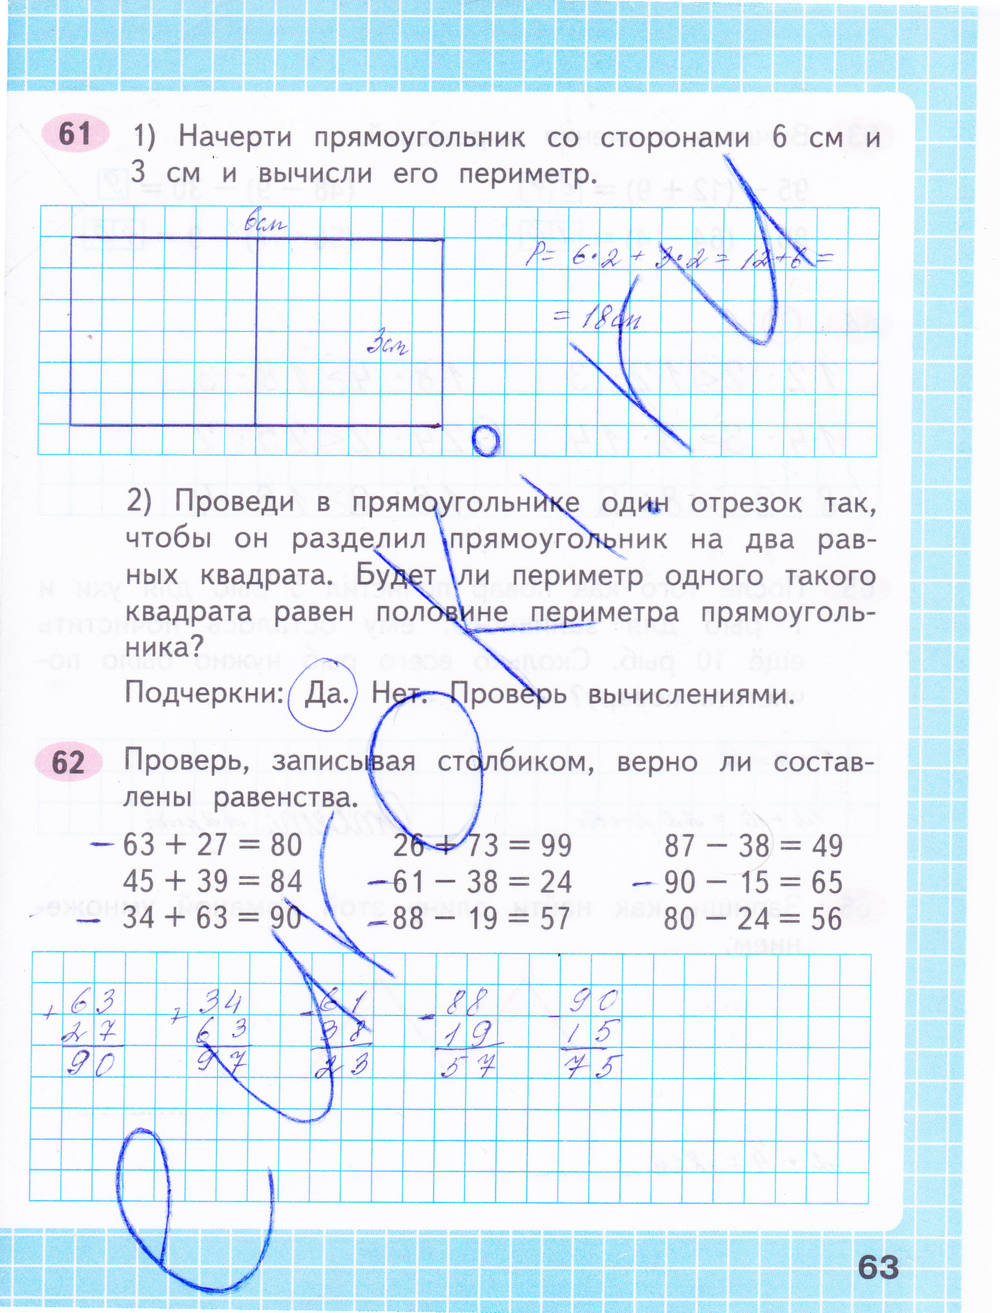 61 1) Начерти прямоугольник со сторонами 6 см и
3 см и вычисли его периметр.
6см
P= 6·2 + 3·2 = 12+6 =
= 18см
3см
2) Проведи в прямоугольнике один отрезок так,
чтобы он разделил прямоугольник на два рав-
ных квадрата. Будет ли периметр одного такого
квадрата равен половине периметра прямоуголь-
ника?
Подчеркни: Да. Нет. Проверь вычислениями.
62 Проверь, записывая столбиком, верно ли состав-
лены равенства.
— 63 + 27 = 80 26 + 73 = 99 87 − 38 = 49
45 + 39 = 84 — 61 − 38 = 24 — 90 − 15 = 65
— 34 + 63 = 90 — 88 − 19 = 57 80 − 24 = 56
+ 63 + 34 - 61 - 88 - 90
27 63 38 19 15
90 97 23 57 75
63